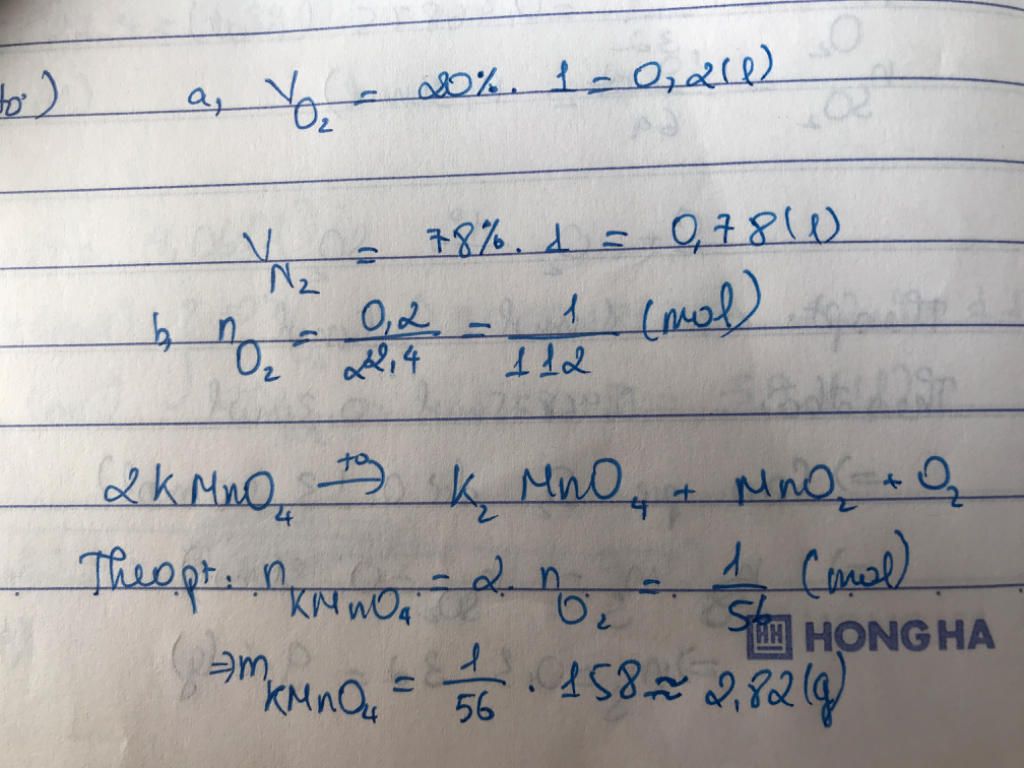 a, V O₂ = 20%. 1 = 0,2(l)
V N₂ = 78%. 1 = 0,78(l)
b, n O₂ = 0,2/22,4 = 1/112 (mol)
2KMnO₄ →(t°) K₂MnO₄ + MnO₂ + O₂
Theo pt: n KMnO₄ = 2. n O₂ = 1/56 (mol)
HONG HA
⇒ m KMnO₄ = 1/56 . 158 ≈ 2,82(g)